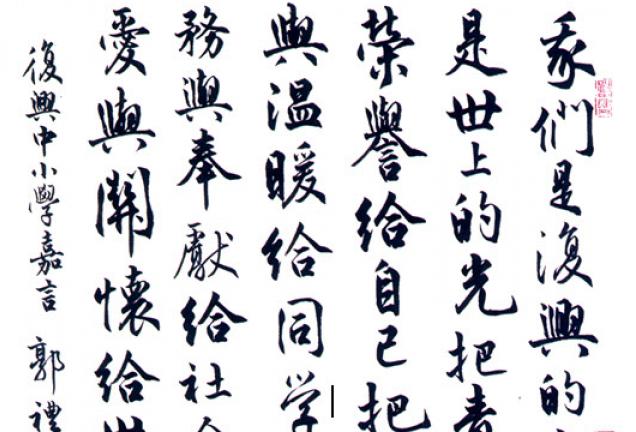 我們是復興的
是世上的光把
榮譽給自己把
與温暖給同学
務與奉獻給社
愛與關懷給
復興中小學嘉言 郭禮